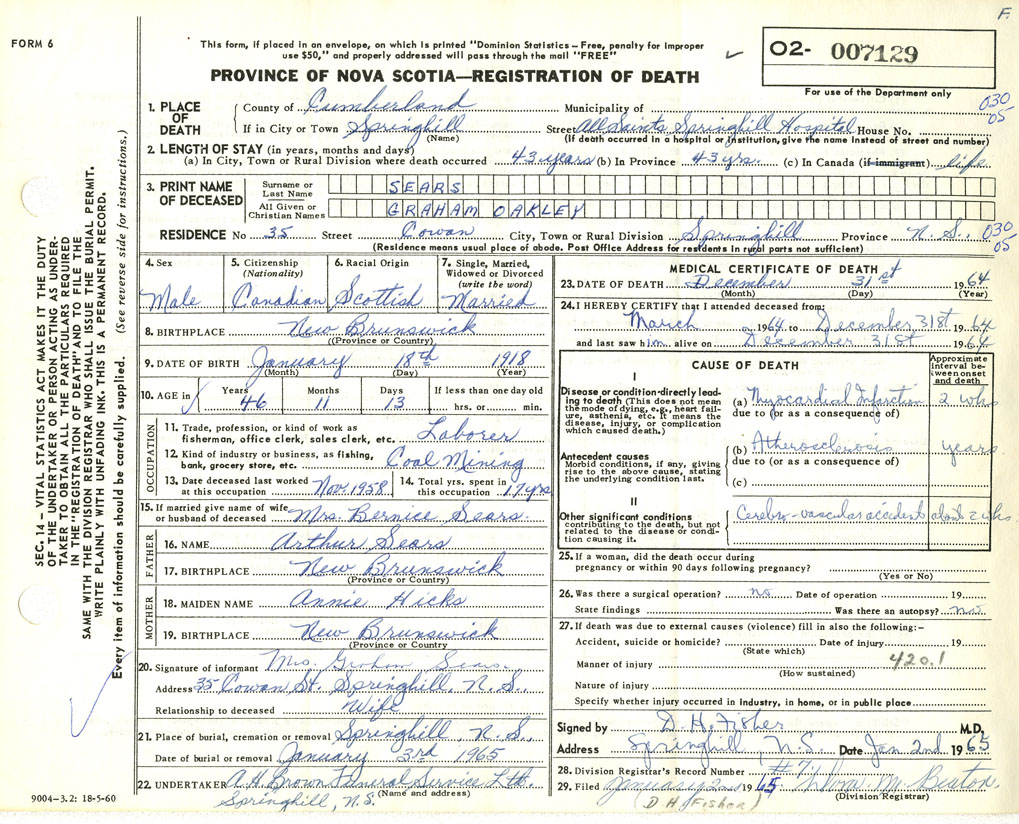 F.
FORM 6
This form, if placed in an envelope, on which is printed "Dominion Statistics – Free, penalty for improper
use $50," and properly addressed will pass through the mail "FREE"
02- 007129
For use of the Department only
PROVINCE OF NOVA SCOTIA—REGISTRATION OF DEATH
SEC. 14 – VITAL STATISTICS ACT MAKES IT THE DUTY
OF THE UNDERTAKER OR PERSON ACTING AS UNDER-
TAKER TO OBTAIN ALL THE PARTICULARS REQUIRED
IN THE "REGISTRATION OF DEATH" AND TO FILE THE
SAME WITH THE DIVISION REGISTRAR WHO SHALL ISSUE THE BURIAL PERMIT.
WRITE PLAINLY WITH UNFADING INK. THIS IS A PERMANENT RECORD.
Every item of information should be carefully supplied. (See reverse side for instructions.)
1. PLACE OF DEATH
County of Cumberland Municipality of 030
05
If in City or Town Springhill Street All Saints Springhill Hospital House No.
(Name) (If death occurred in a hospital or institution, give the name instead of street and number)
2. LENGTH OF STAY (in years, months and days)
(a) In City, Town or Rural Division where death occurred 43 years (b) In Province 43 yrs. (c) In Canada (if immigrant) life
3. PRINT NAME OF DECEASED
Surname or Last Name SEARS
All Given or Christian Names GRAHAM OAKLEY
RESIDENCE No 35 Street Cowan City, Town or Rural Division Springhill Province N.S. 030
05
(Residence means usual place of abode. Post Office Address for residents in rural parts not sufficient)
4. Sex Male
5. Citizenship (Nationality) Canadian
6. Racial Origin Scottish
7. Single, Married, Widowed or Divorced (write the word) Married
8. BIRTHPLACE New Brunswick
(Province or Country)
9. DATE OF BIRTH January 18th 1918
(Month) (Day) (Year)
10. AGE in Years 46 Months 11 Days 13 If less than one day old hrs. or min.
OCCUPATION
11. Trade, profession, or kind of work as
fisherman, office clerk, sales clerk, etc. Laborer
12. Kind of industry or business, as fishing,
bank, grocery store, etc. Coal Mining
13. Date deceased last worked at this occupation Nov. 1958
14. Total yrs. spent in this occupation 17 yrs
15. If married give name of wife
or husband of deceased Mrs. Bernice Sears.
FATHER
16. NAME Arthur Sears
17. BIRTHPLACE New Brunswick
(Province or Country)
MOTHER
18. MAIDEN NAME Annie Hicks
19. BIRTHPLACE New Brunswick
(Province or Country)
20. Signature of informant Mrs. Graham Sears.
Address 35 Cowan St. Springhill, N.S.,
Relationship to deceased Wife
21. Place of burial, cremation or removal Springhill, N.S.,
Date of burial or removal January 3rd 1965
22. UNDERTAKER A.H. Brown Funeral Service Ltd.
(Name and address)
Springhill, N.S.
9004–3.2: 18-5-60
MEDICAL CERTIFICATE OF DEATH
23. DATE OF DEATH December 31st 1964
(Month) (Day) (Year)
24. I HEREBY CERTIFY that I attended deceased from:
March 1964 to December 31st 1964
and last saw him alive on December 31st 1964
CAUSE OF DEATH
Approximate Interval between onset and death
I
Disease or condition directly leading to death (This does not mean
the mode of dying, e.g., heart failure, asthenia, etc. It means the
disease, injury, or complication
which caused death.)
(a) Myocardial Infarction 2 wks
due to (or as a consequence of)
Antecedent causes
Morbid conditions, if any, giving
rise to the above cause, stating
the underlying condition last.
(b) Atherosclerosis years
due to (or as a consequence of)
(c)
II
Other significant conditions
contributing to the death, but not
related to the disease or condition causing it.
Cerebro-vascular accident about 2 wks
25. If a woman, did the death occur during
pregnancy or within 90 days following pregnancy?
(Yes or No)
26. Was there a surgical operation? no Date of operation 19
State findings Was there an autopsy? no
27. If death was due to external causes (violence) fill in also the following:–
Accident, suicide or homicide? Date of injury 19
(State which)
420.1
Manner of injury
(How sustained)
Nature of injury
Specify whether injury occurred in industry, in home, or in public place
Signed by D. H. Fisher M.D.
Address Springhill, N.S. Date Jan 2nd 1965
28. Division Registrar's Record Number
29. Filed January 2nd 1965 M. Beaton
(D H Fisher) (Division Registrar)